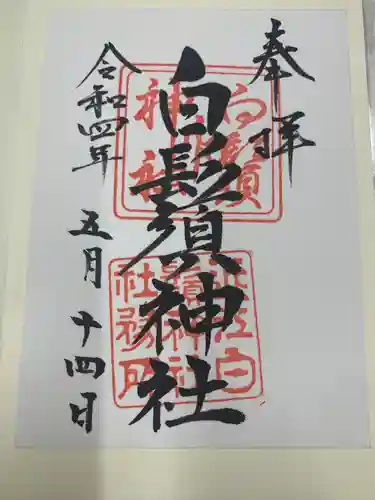 奉拝
白鬚神社
令和四年
五月十四日
白鬚神社
近江白鬚神社社務所